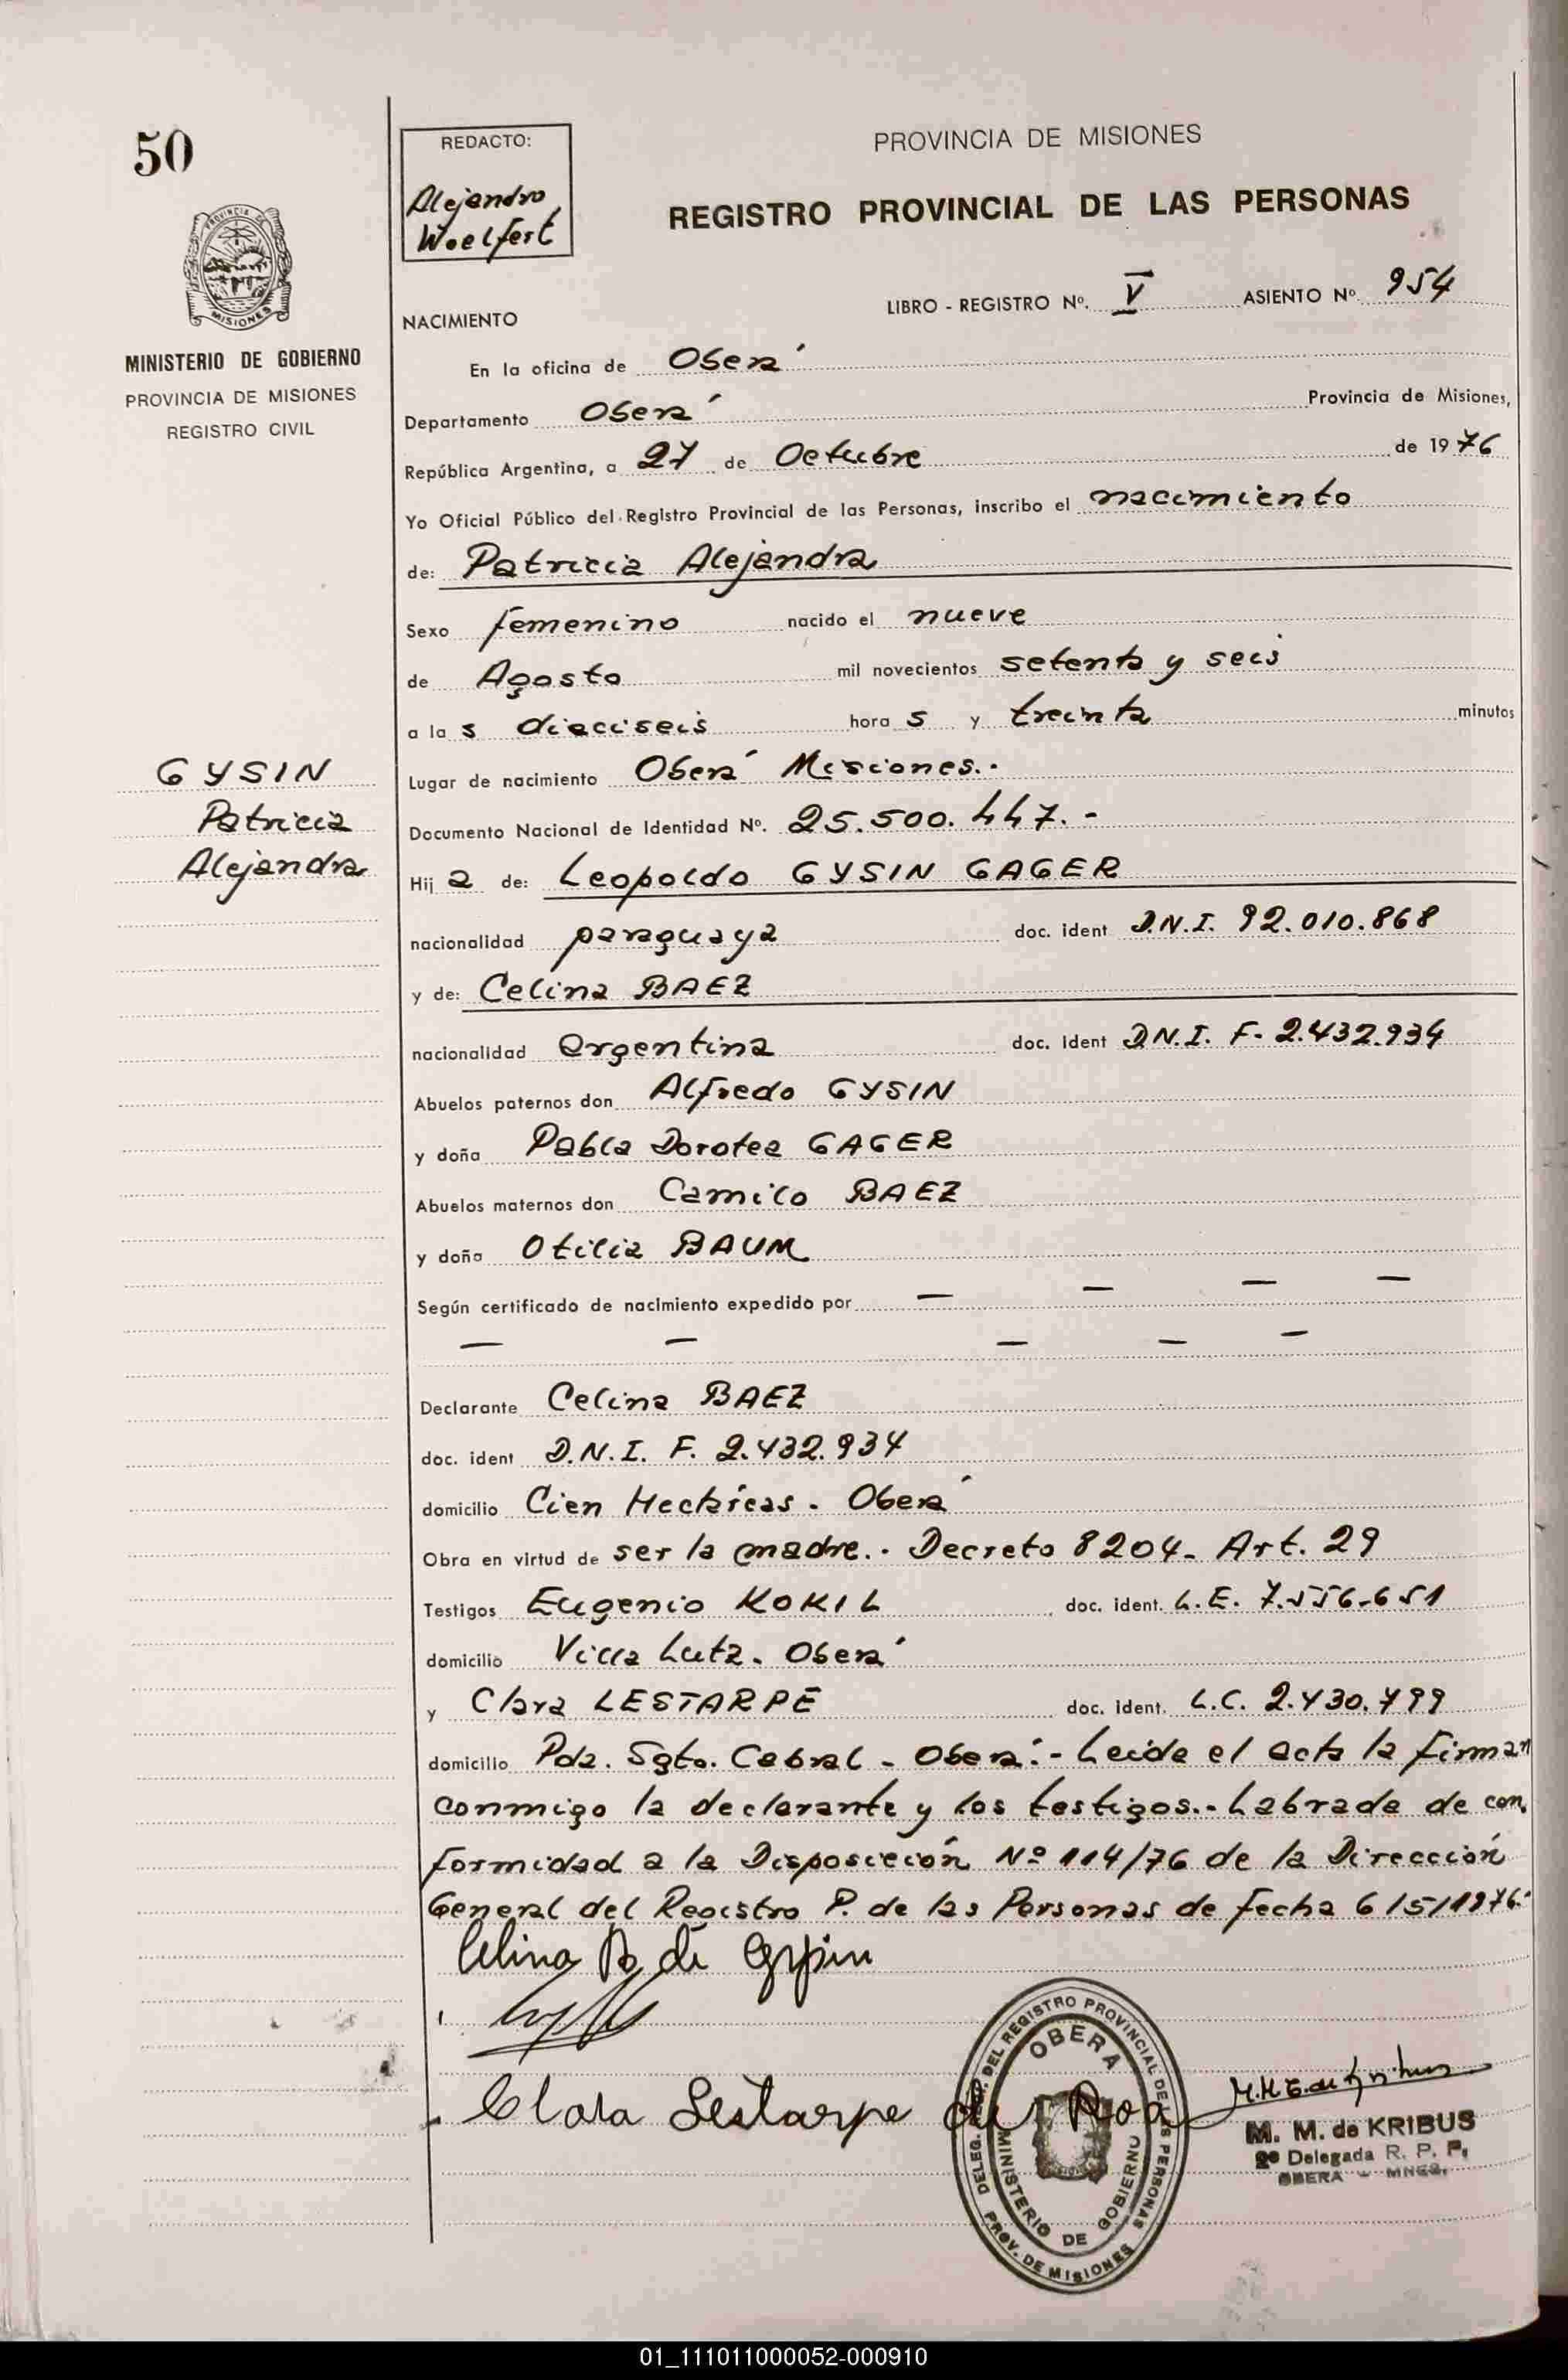 50
REDACTO:
Alejandro
Woelfert
PROVINCIA DE MISIONES
REGISTRO PROVINCIAL DE LAS PERSONAS
PROVINCIA DE MISIONES
MINISTERIO DE GOBIERNO
PROVINCIA DE MISIONES
REGISTRO CIVIL
LIBRO - REGISTRO Nº. V ASIENTO Nº 954
NACIMIENTO
En la oficina de Oberá
Departamento Oberá Provincia de Misiones,
República Argentina, a 27 de Octubre de 1976
Yo Oficial Público del Registro Provincial de las Personas, inscribo el nacimiento
de: Patricia Alejandra
Sexo femenino nacido el nueve
de Agosto mil novecientos setenta y seis
a las dieciseis horas y treinta minutos
GYSIN
Patricia
Alejandra
Lugar de nacimiento Oberá Misiones.-
Documento Nacional de Identidad Nº. 25.500.447.-
Hija de: Leopoldo GYSIN GAGER
nacionalidad paraguaya doc. ident D.N.I. 92.010.868
y de: Celina BAEZ
nacionalidad argentina doc. ident D.N.I. F. 2.432.934
Abuelos paternos don Alfredo GYSIN
y doña Pabla Dorotea GAGER
Abuelos maternos don Camilo BAEZ
y doña Otilia BAUM
Según certificado de nacimiento expedido por — — — —
— — — — —
Declarante Celina BAEZ
doc. ident D.N.I. F. 2.432.934
domicilio Cien Hectáreas. Oberá
Obra en virtud de ser la madre.- Decreto 8204- Art. 29
Testigos Eugenio KOKIL doc. ident. L.E. 7.556.651
domicilio Villa Lutz. Oberá
y Clara LESTARPE doc. ident. L.C. 2.430.799
domicilio Pda. Sgto. Cabral - Oberá.- Leida el acta la firman
conmigo la declarante y los testigos.- Labrada de con
formidad a la Disposición Nº 114/76 de la Dirección
General del Registro P. de las Personas de fecha 6/5/1976.-
Celina B de Gysin
Clara Lestarpe de Roa
DELEG. DEL REGISTRO PROVINCIAL DE LAS PERSONAS
OBERA
MINISTERIO DE GOBIERNO
PROV. DE MISIONES
M. M. de KRIBUS
2º Delegada R. P. P.
OBERA - MNES.
01_111011000052-000910